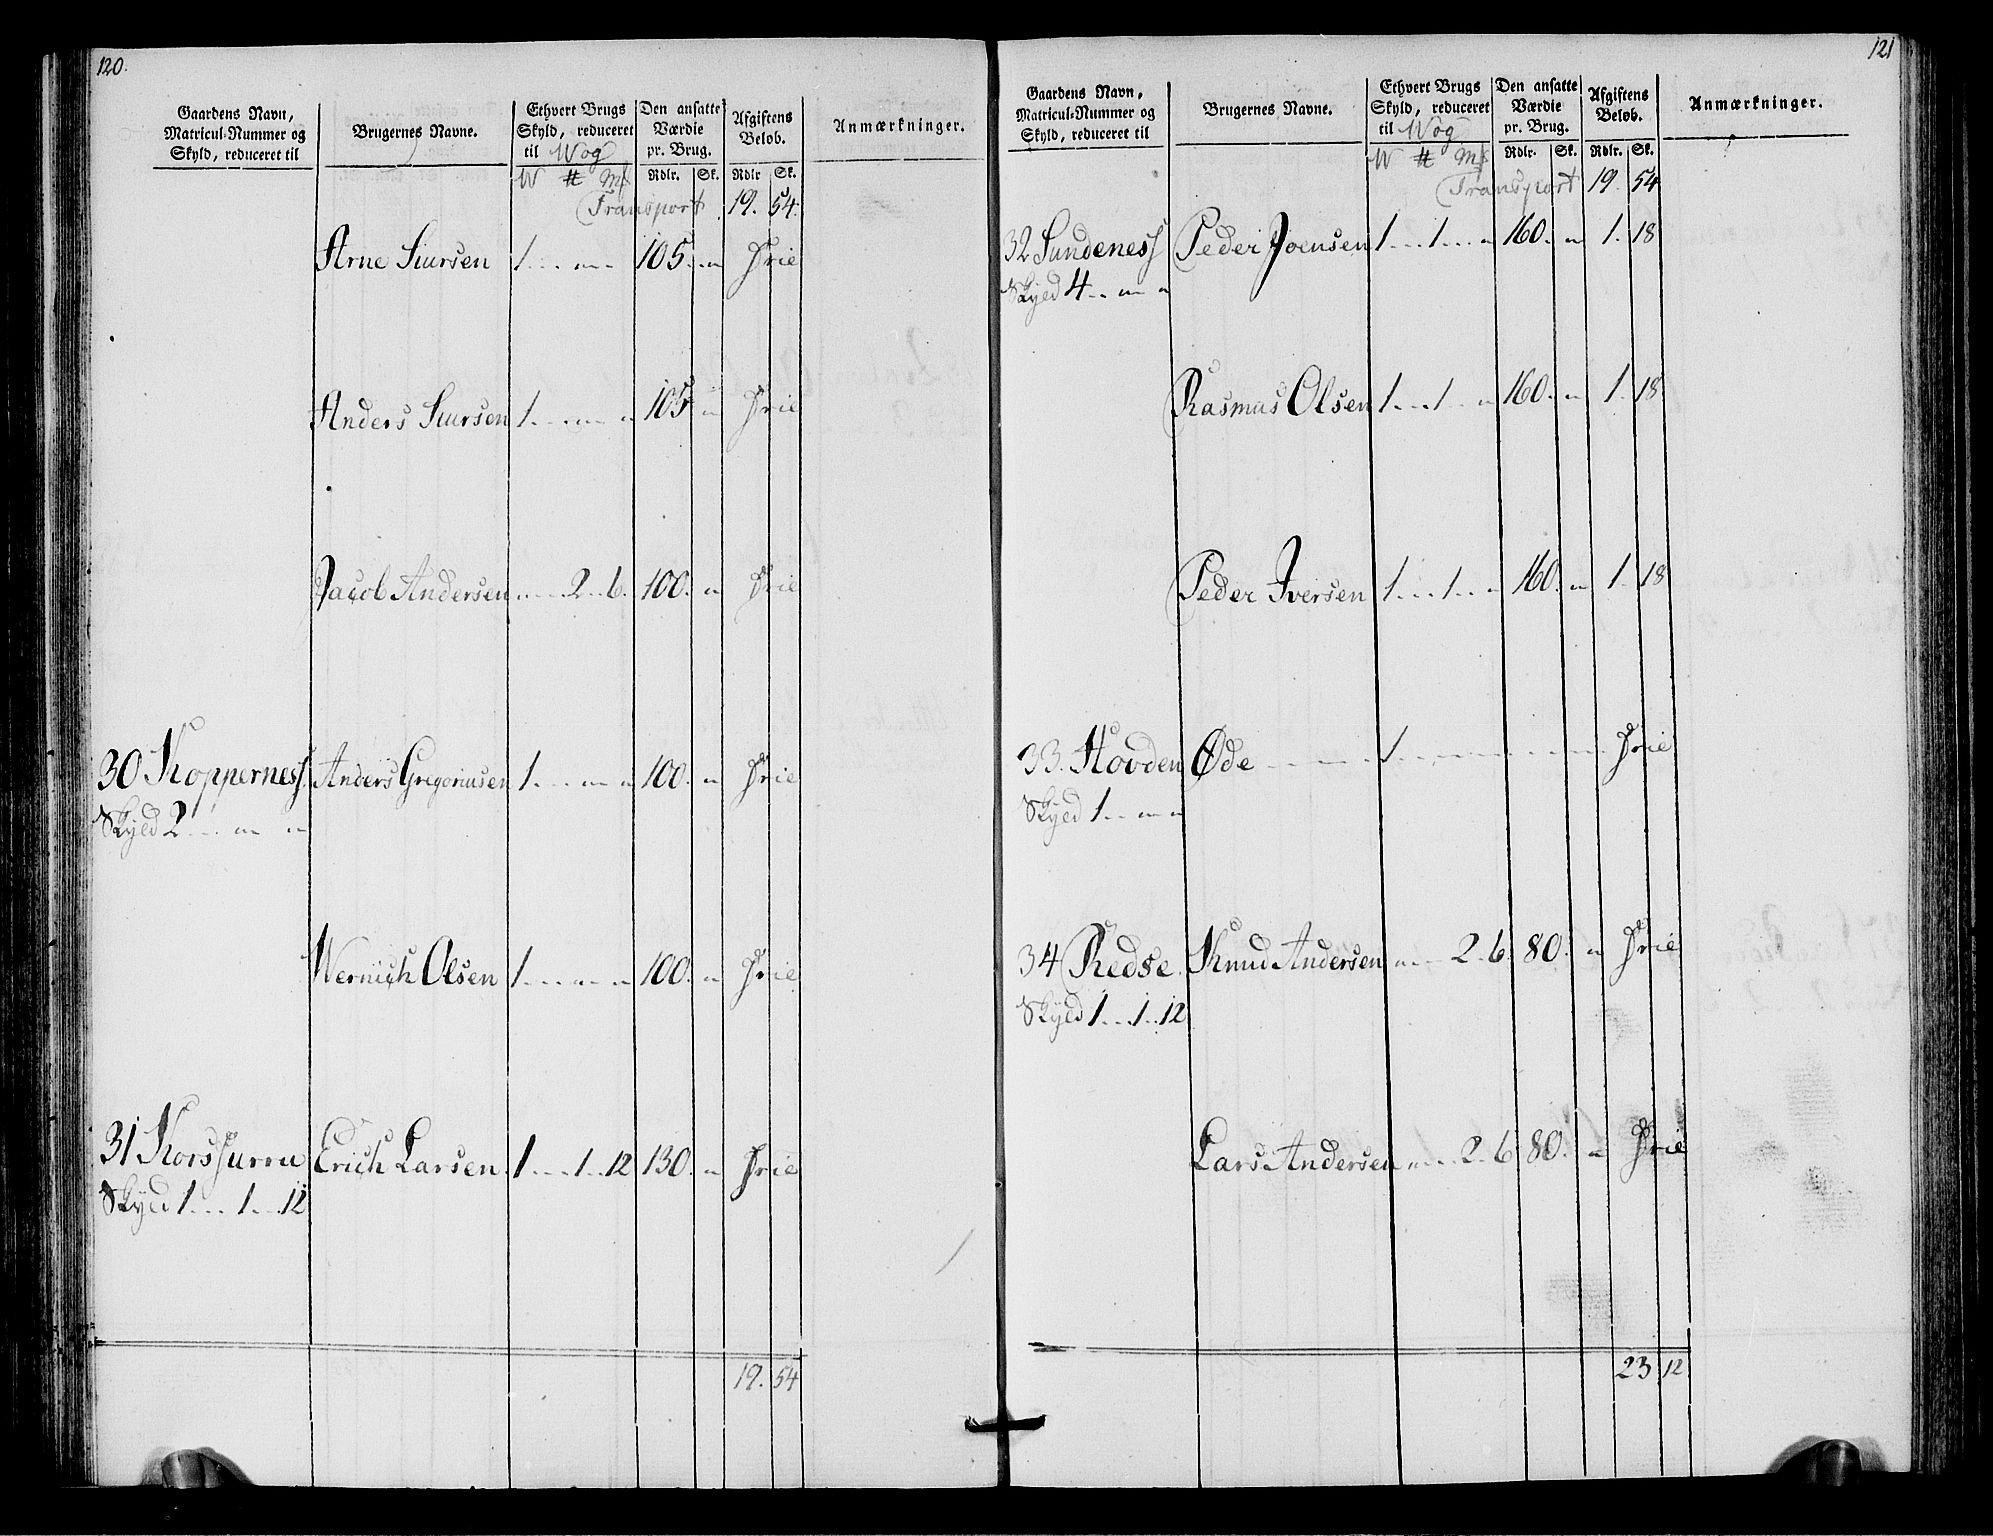 120.
Gaardens Navn, Matricul-Nummer og Skyld, reduceret til | Brugernes Navne. | Ethvert Brugs Skyld, reduceret til Wog | Den ansatte Værdie pr. Brug. | Afgiftens Beløb. | Anmærkninger.
W # Mk | Rdlr. | Sk. | Rdlr | Sk.
Transport 19. 54.
Arne Siursen 1 . . „ . „ 105. „ Frie
Anders Siursen 1 . . „ . „ 105 „ Frie
Jacob Andersen „ . . 2 . . 6. 100. „ Frie
30 Kopperness. Anders Gregoriusen 1 . . „ . „ 100. „ Frie
Skyld 2 . . „ . „
Wernich Olsen 1 . . „ . „ 100. „ Frie
31 Korssurru Erich Larsen 1 . . 1 . . 12 130. „ Frie
Skyld 1 . . 1 . . 12
19. 54
121
Gaardens Navn, Matricul-Nummer og Skyld, reduceret til | Brugernes Navne. | Ethvert Brugs Skyld, reduceret til Wog | Den ansatte Værdie pr. Brug. | Afgiftens Beløb. | Anmærkninger.
W # Mk | Rdlr. | Sk. | Rdlr. | Sk.
Transport 19. 54
32 Sundeness Peder Joensen 1 . . 1 . . „ 160. „ 1. 18
Skyld 4 . . „ . „
Rasmus Olsen 1 . . 1 . . „ 160. „ 1. 18
Peder Iversen 1 . . 1 . . „ 160. „ 1. 18
33. Hovden Øde 1 . . . . Frie
Skyld 1 . . „ . „
34 Redse Knud Andersen „ . . 2 . 6. 80. „ Frie
Skyld 1 . . 1 . . 12
Lars Andersen „ . . 2 . 6 80. „ Frie
23. 12